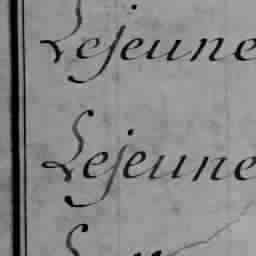 Lejeune
Lejeune